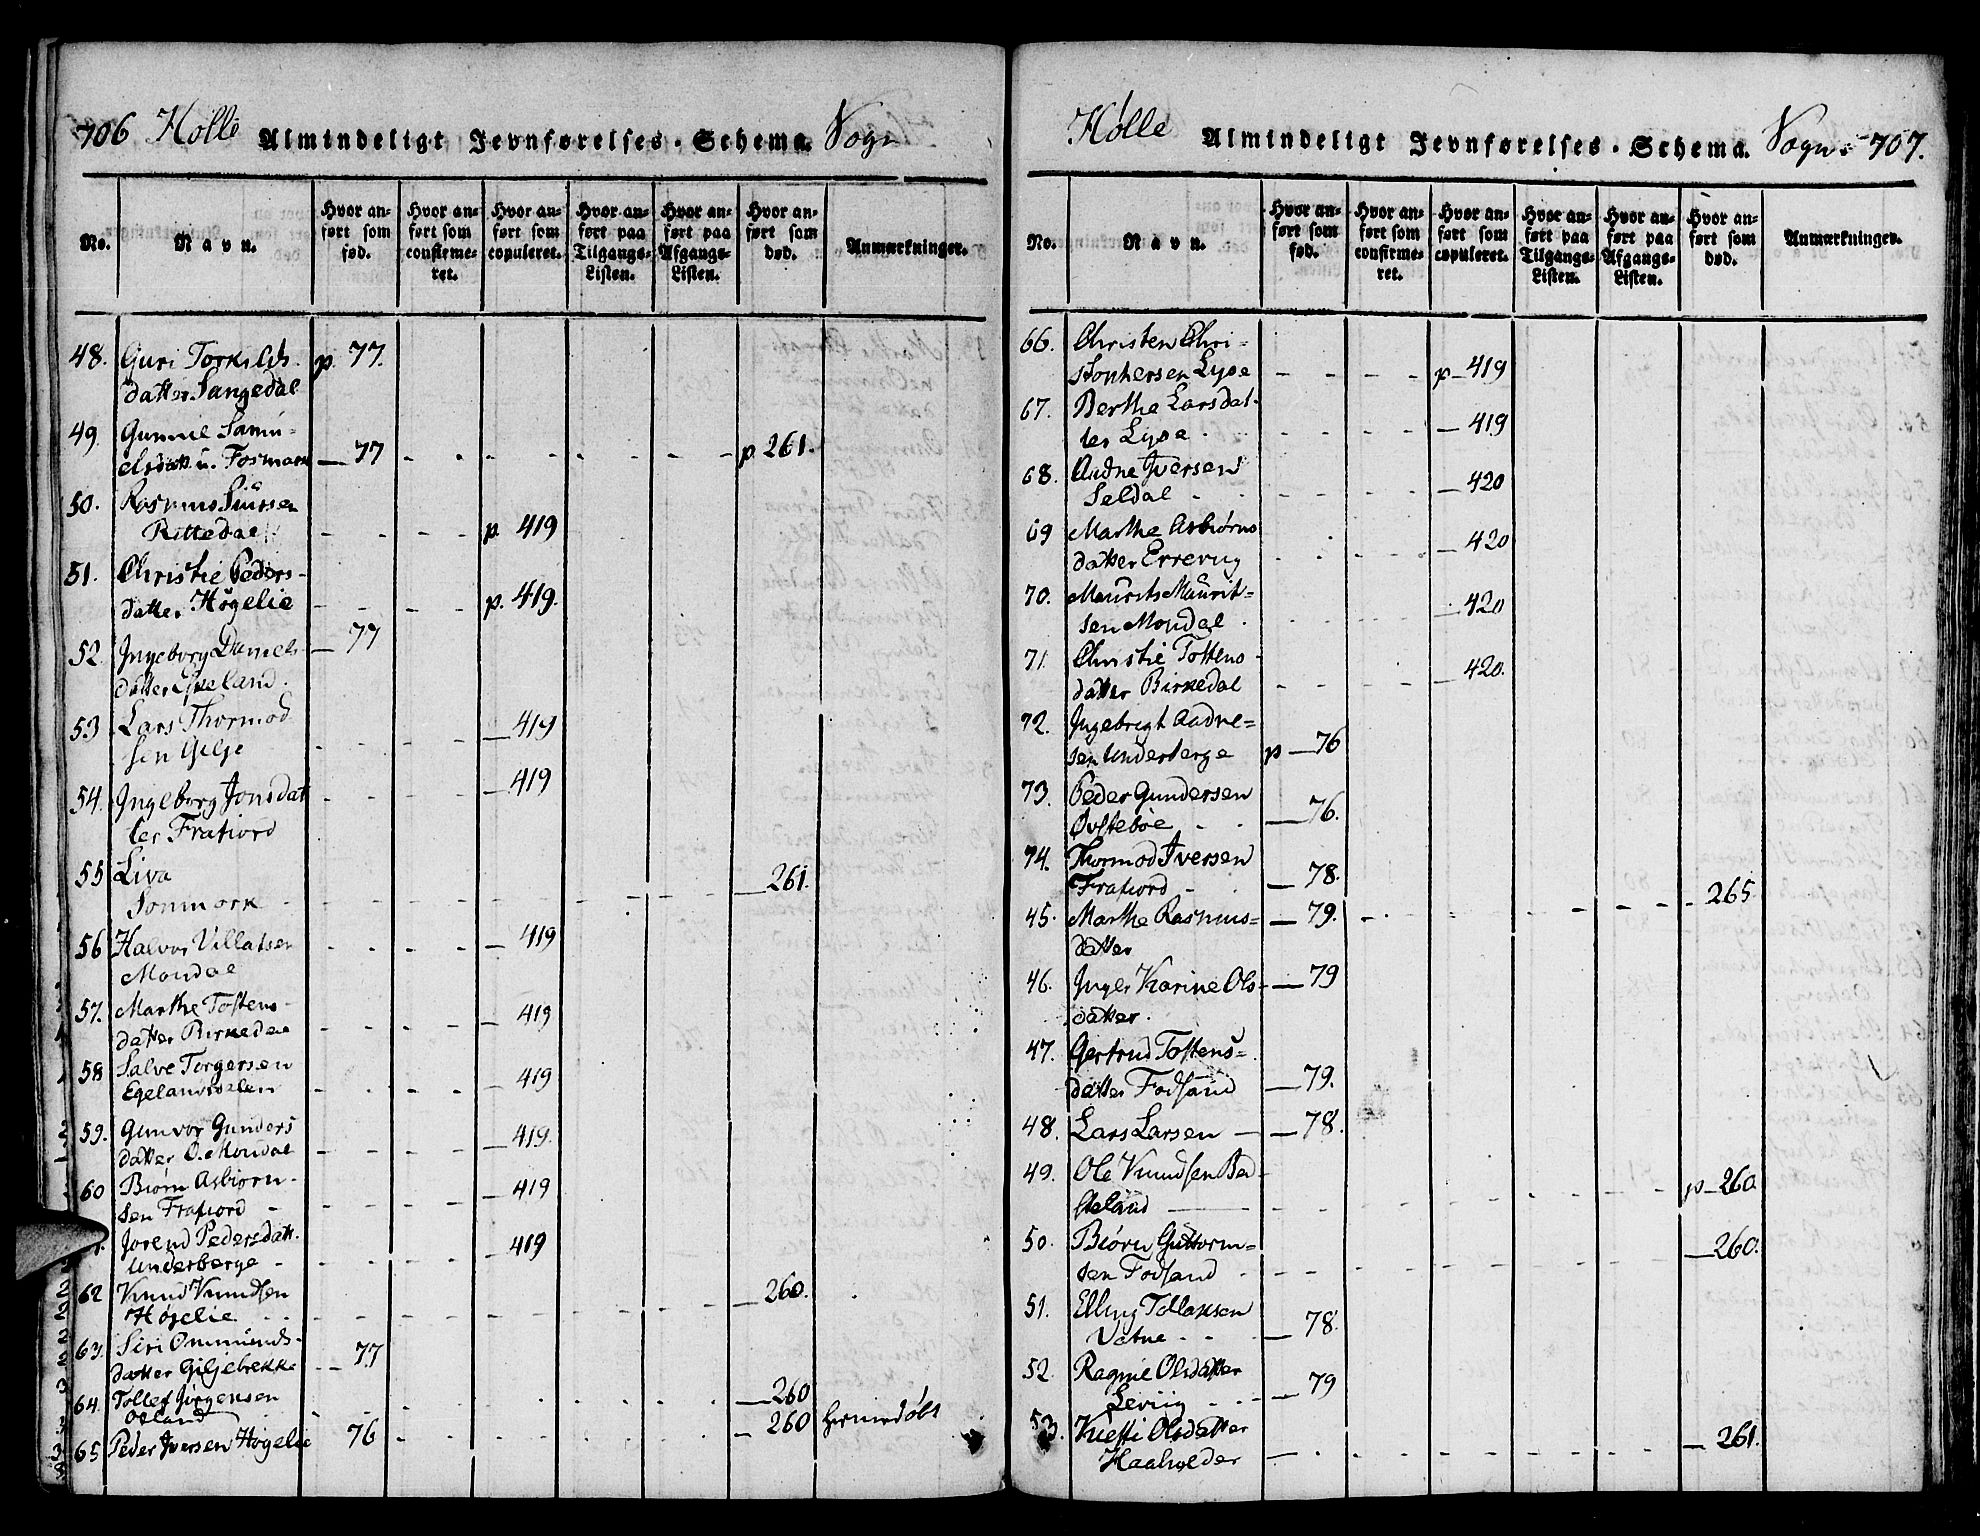 706 Holle Almindeligt Jevnførelses-Schema. Sogn
No. Navn. Hvor anført som fød. Hvor anført som confirmeret. Hvor anført som copuleret. Hvor anført paa Tilgangs-Listen. Hvor anført paa Afgangs-Listen. Hvor anført som død. Anmærkninger.
48. Guri Torkilds p. 77.
datter Sangedal
49. Gunnil Samu-
elsdatt. u. Fosmark — 77 - - - - - - p. 261.
50. Rasmus
Rettedal - - - - p. 419
51. Christie Peders-
datter Høgelie - - - - p. 419.
52. Ingeborg Daniels — 77
datter Eikeland.
53 Lars Thormod
sen Gilje - - - - — 419
54. Ingeborg Jonsdat - - - - — 419
ter Frafiord
55 Siva
- - - - — 261.
56 Halvor Villatsen - - - - — 419
Mondal
57. Marthe Tostens- — 419
datter Birkedal - - - -
58 Salve Torgersen
Egelandsdalen - - - - — 419
59. Gunvor Gunders — 419.
datter O. Mondal - - - -
60 Biørn Asbiørn- — 419
sen Frafiord - - - -
Jorend Pedersdatt. — 419
Underberge - - - -
62 Knud Knudsen — 260.
Høgelie - - - -
63. Siri Ommunds-
datter Giljebrekke — 77
64. Tollef Jørgensen — 260
Oeland
65 Peder Iversen Høgelie 76 - - - - — 260 hiemedøbt
Hølle Almindeligt Jevnførelses-Schema. Sogn 707.
No. Navn. Hvor anført som fød. Hvor anført som confirmeret. Hvor anført som copuleret. Hvor anført paa Tilgangs-Listen. Hvor anført paa Afgangs-Listen. Hvor anført som død. Anmærkninger.
66. Christen Chri-
stophersen Lyse - - - - p — 419
67. Berthe Larsdat-
ter Lyse - - - - — 419
68. Audne Iversen
Seldal - - - - — 420
69 Marthe Asbiørns
datter Errevig - - - - — 420
70. Maurits Maurit=
sen Mondal - - - - — 420
71. Christie Tostens-
datter Birkedal - - - - — 420.
72. Ingebrigt Aadne=
sen Underberge p — 76
73. Peder Gundersen
Øvstebøe — 76.
74. Thormod Iversen
Frafiord — 78. - - - - 265
45. Marthe Rasmus= — 79.
datter
46. Inger Karine Ols- — 79
datter.
47. Gertrud Tostens=
datter Fossand — 79.
48. Lars Larsen — — 78.
49. Ole Knudsen Ber-
geland — - - - - p — 260
50. Biørn Guttorm= — 260.
sen Fossand - - - -
51. Elling Tollaksen
Vatne — 78.
52. Ragnie Olsdatter
Leviig — 79
53. Olsdatter
Haahelder - - - - — 261.